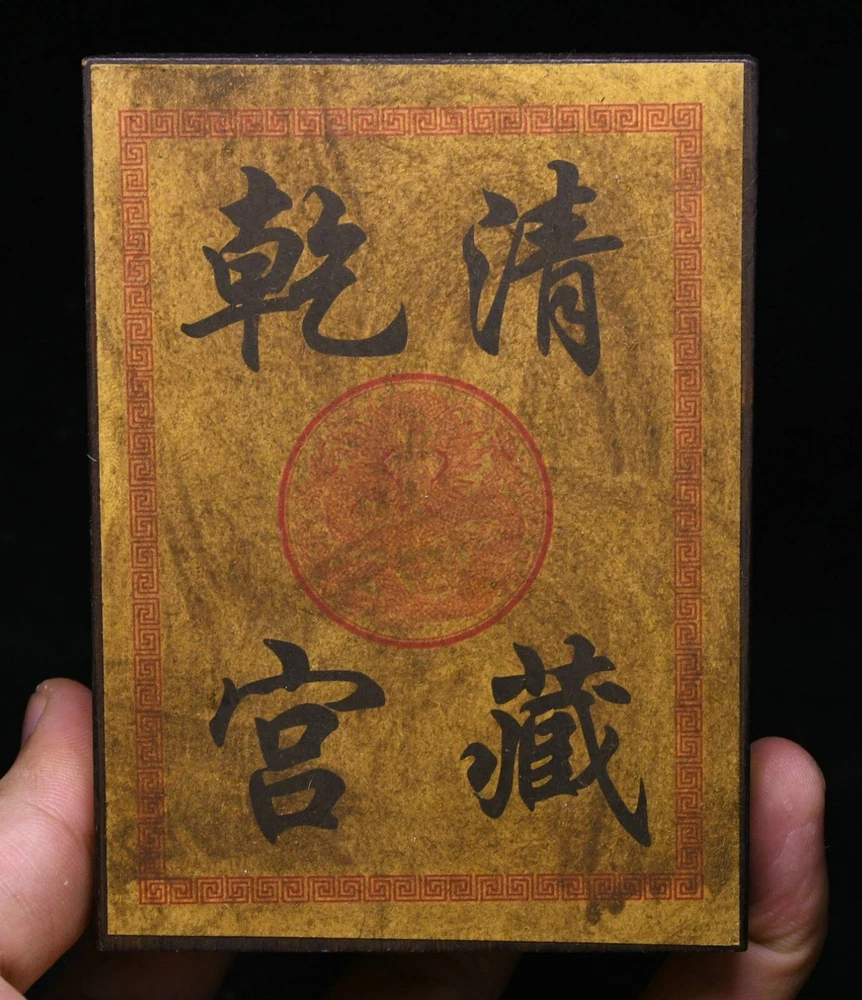 乾清
宫藏